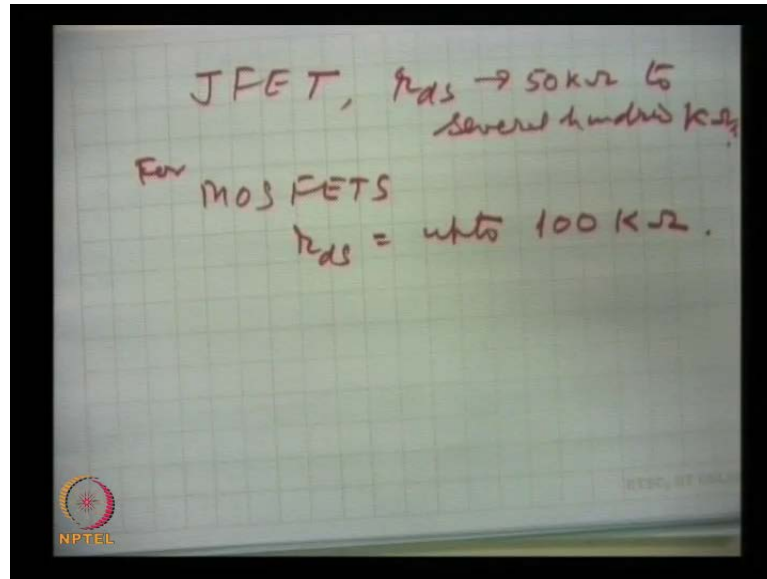 JFET, rds → 50KΩ to
several hundred KΩ.
For
MOSFETS
rds = upto 100 KΩ.
NPTEL